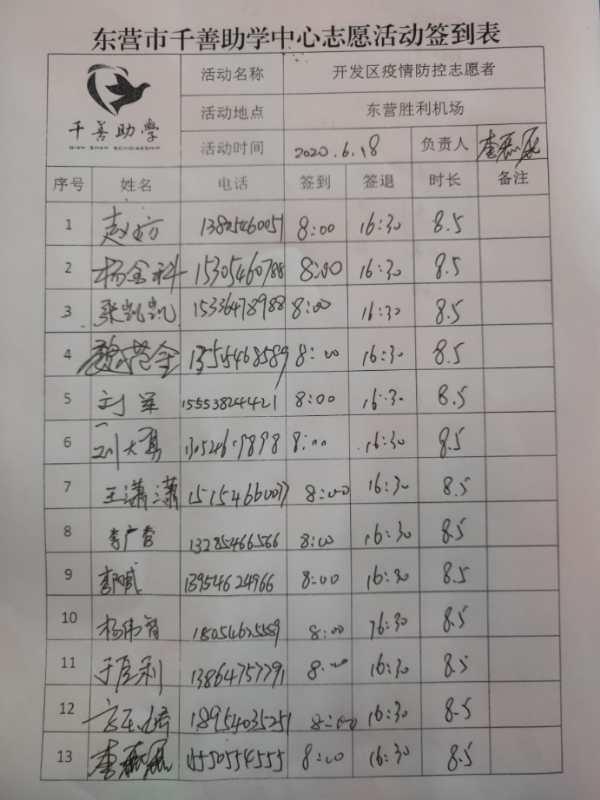 东营市千善助学中心志愿活动签到表
千善助学
活动名称 开发区疫情防控志愿者
活动地点 东营胜利机场
活动时间 2020.6.18 负责人
序号 姓名 电话 签到 签退 时长 备注
1 8:00 16:30 8.5
2 杨金科 15305460788 8:00 16:30 8.5
3 张凯凯 15336478988 8:00 16:30 8.5
4 8:00 16:30 8.5
5 刘军 15553824421 8:00 16:30 8.5
6 刘大勇 8:00 16:30 8.5
7 王潇潇 8:00 16:30 8.5
8 13285466566 8:00 16:30 8.5
9 13954624966 8:00 16:30 8.5
10 杨伟智 8:00 16:30 8.5
11 13864757791 8:00 16:30 8.5
12 18954035251 8:00 16:30 8.5
13 15550554555 8:00 16:30 8.5